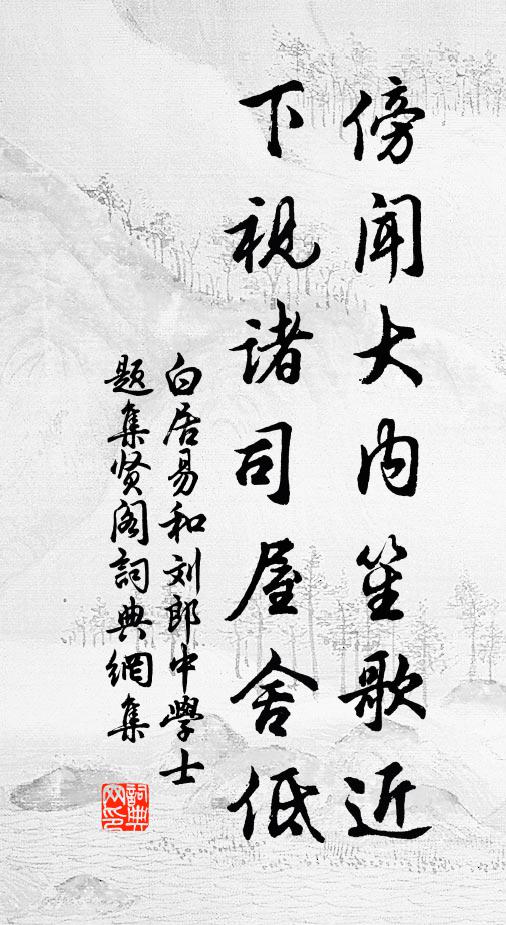 傍闻大内笙歌近
下视诸司屋舍低
白居易和刘郎中學士
题集贤阁詞典網集
詞典网印